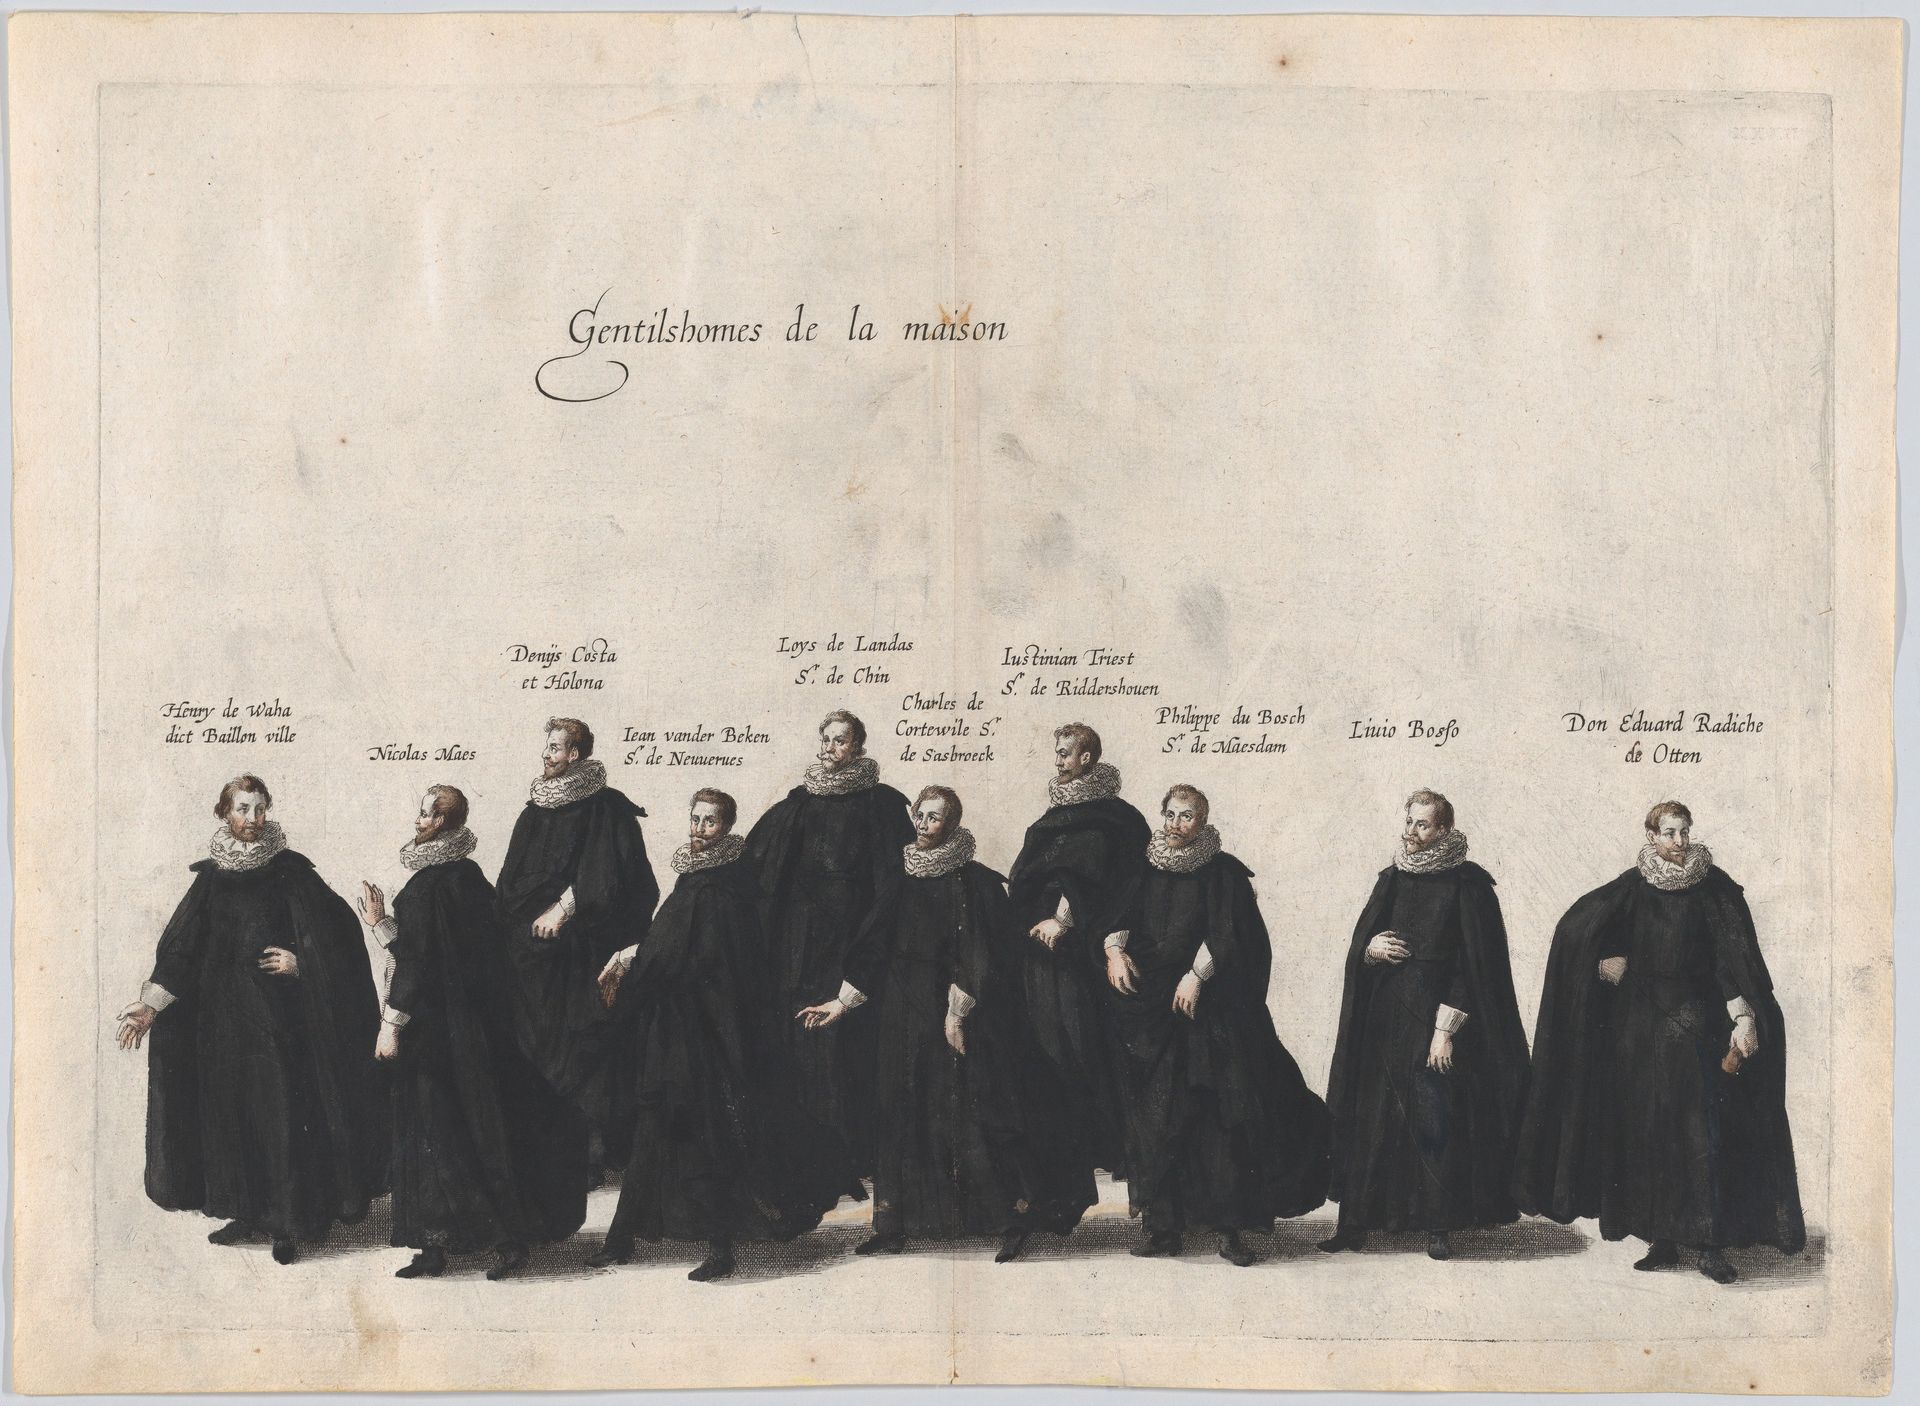 Gentilshomes de la maison
Henry de Waha
dict Baillon ville
Nicolas Maes
Denijs Costa
et Holona
Iean vander Beken
Sr. de Neuuerues
Loys de Landas
Sr. de Chin
Charles de
Cortewile Sr.
de Sasbroeck
Iustinian Triest
Sr. de Riddershouen
Philippe du Bosch
Sr. de Maesdam
Liuio Bosso
Don Eduard Radiche
de Otten